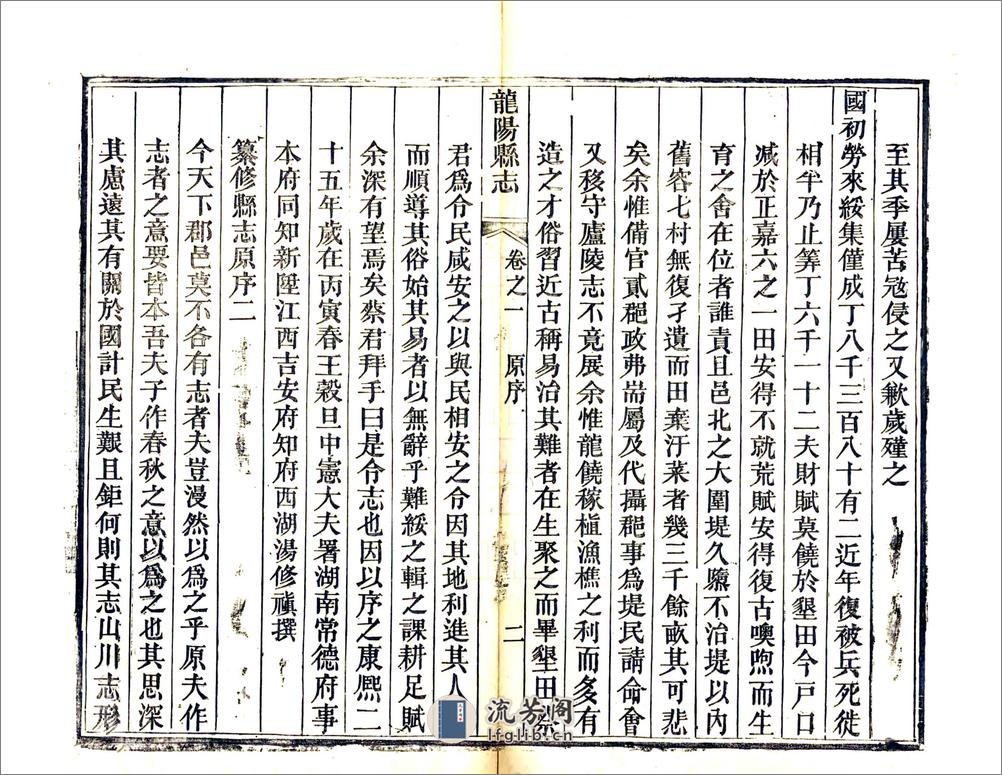 至其季屢苦寇侵之又歉歲殣之
國初勞來綏集僅成丁八千三百八十有二近年復被兵死徙
相半乃止筭丁六千一十二夫財賦莫饒於墾田今戸口
減於正嘉六之一田安得不就荒賦安得復古噢煦而生
育之舍在位者誰責且邑北之大圍堤久隳不治堤以內
舊容七村無復孑遺而田棄汙萊者幾三千餘畝其可悲
矣余惟備官貳郡政弗耑屬及代攝郡事爲堤民請命會
又移守廬陵志不竟展余惟龍饒稼植漁樵之利而多有
造之才俗習近古稱易治其難者在生聚之而畢墾田
龍陽縣志
卷之一
原序
二
君爲令民咸安之以與民相安之令因其地利進其人
而順導其俗始其易者以無辭乎難綏之輯之課耕足賦
余深有望焉矣蔡君拜手曰是令志也因以序之康熈二
十五年歲在丙寅春王穀旦中憲大夫署湖南常德府事
本府同知新陞江西吉安府知府西湖湯修禛撰
纂修縣志原序二
今天下郡邑莫不各有志者夫豈漫然以爲之乎原夫作
志者之意要皆本吾夫子作春秋之意以爲之也其思深
其慮遠其有關於國計民生艱且鉅何則其志山川志形
流芳阁
lfglib.cn